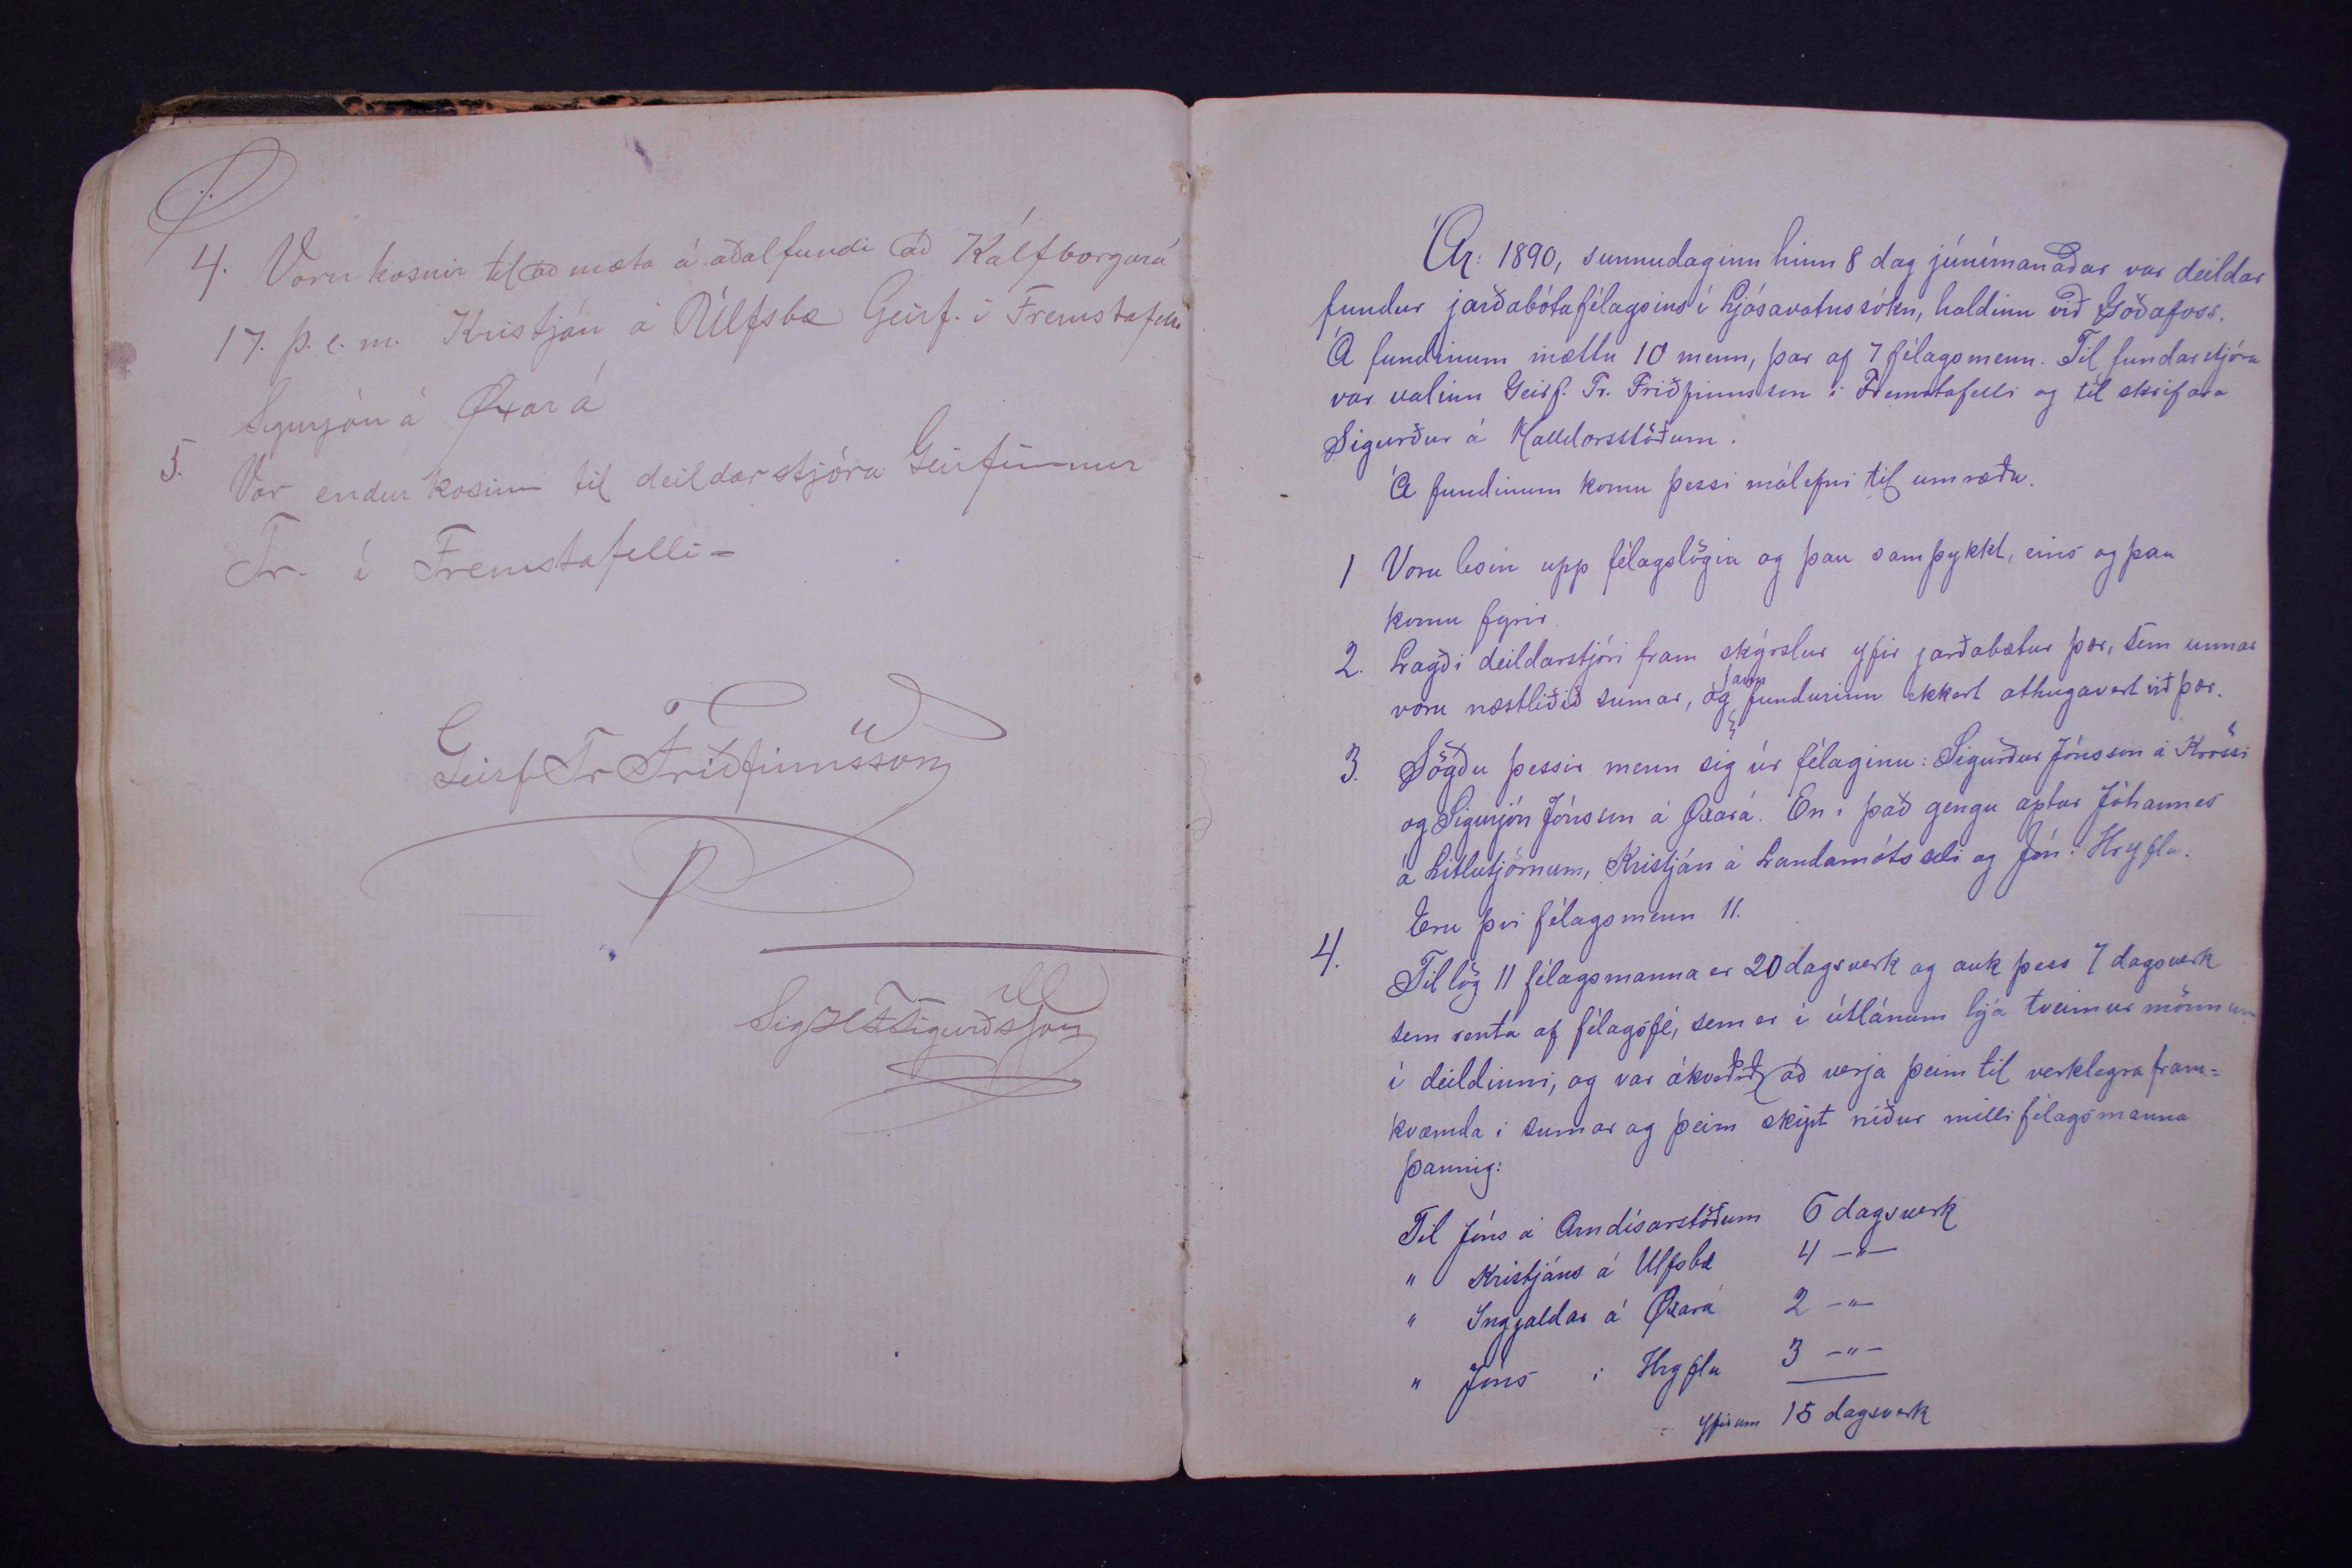 4. Voru kosnir til að mæta á aðalfundi að Kálfborgará
17. þ.e.m. Kristján á Úlfsbæ Geirf. í Fremstafelli
Sigurjón á Øxará
5. Var endurkosinn til deildarstjóra Geirfinnur
Tr. í Fremstafelli -
Geirf Tr Friðfinnsson
Sigurðsson
Ár: 1890, sunnudaginn hinn 8 dag júnímanaðar var deildar
fundur jarðabótafélagsins í Ljósavatnssókn, haldinn við Goðafoss.
Á fundinum mættu 10 menn, þar af 7 félagsmenn. Til fundarstjóra
var valinn Geirf. Tr. Friðfinnsson í Fremstafelli og til skrifara
Sigurður á Halldorsstöðum.
Á fundinum komu þessi málefni til umræðu.
1 Voru lesin upp félagslögin og þau samþykkt, eins og þau
komu fyrir.
2. Lagði deildarstjóri fram skýrslur yfir jarðabætur þær, sem unnar
voru næstliðið sumar, og fann fundurinn ekkert athugavert við þær.
3. Sögðu þessir menn sig úr félaginu: Sigurður Jónsson á Krossi
og Sigurjón Jónsson á Øxará. En í það gengu aptur Jóhannes
á Litlutjörnum, Kristján á Landamótsseli og Jón í Hryflu.
Eru því félagsmenn 11.
4. Tillög 11 félagsmanna er 20 dagsverk og auk þess 7 dagsverk
sem renta af félagsfé, sem er í útlánum hjá tveimur mönnum
í deildinni, og var ákveðið að verja þeim til verklegra fram=
kvæmda í sumar og þeim skipt niður milli félagsmanna
þannig:
Til Jóns á Arndísarstöðum 6 dagsverk
" Kristjáns á Ulfsbæ 4 -"-
" Ingjaldar á Øxará 2 -"-
" Jóns í Hryflu 3 -"-
Yfirum 15 dagsverk